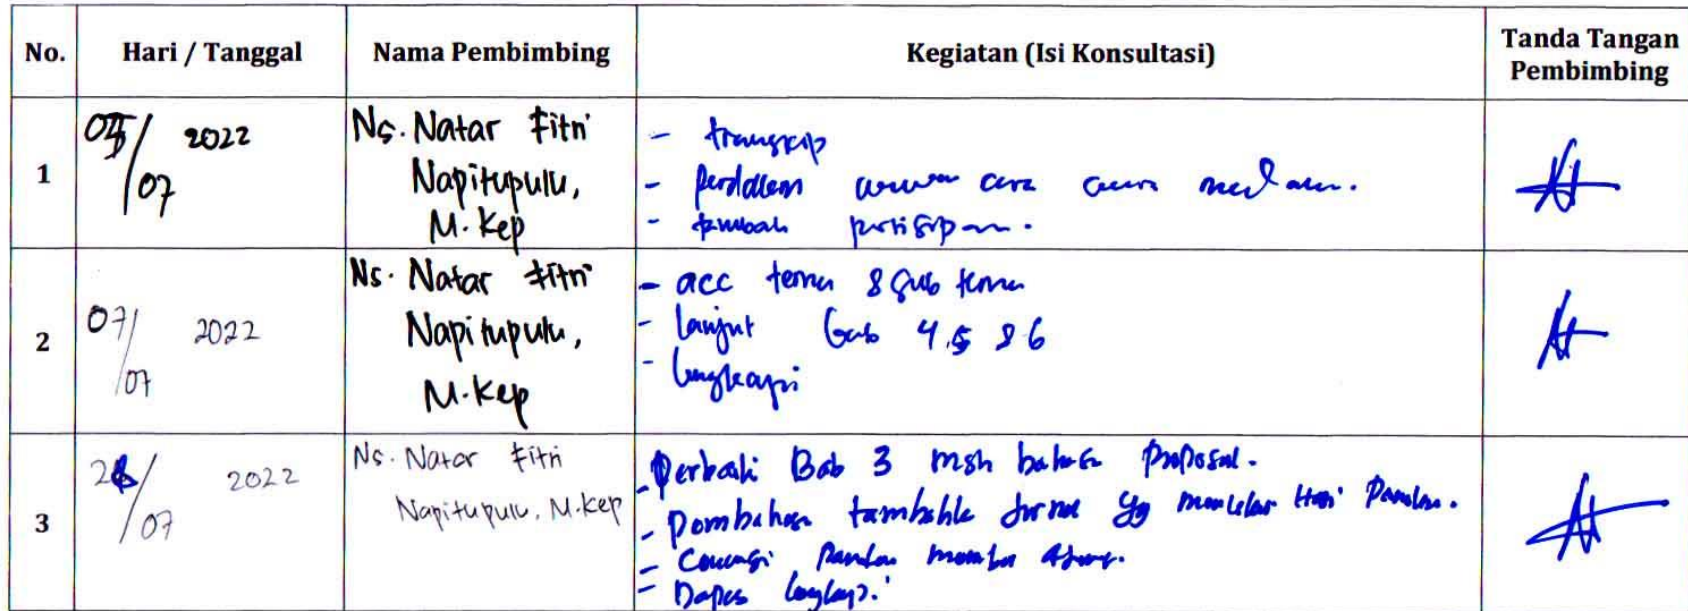 No. Hari / Tanggal Nama Pembimbing Kegiatan (Isi Konsultasi) Tanda Tangan Pembimbing
1
05/07 2022
Ns. Natar Fitri
Napitupulu,
M.Kep
- transkip
- perdalam cara
- tambah partisipan.
2
07/07 2022
Ns. Natar Fitri
Napitupulu,
M.Kep
- acc tema & sub tema
- lanjut bab 4,5 & 6
- lengkapi
3
2022
07
Ns. Natar Fitri
Napitupulu, M.Kep
- Perbaiki Bab 3 msh bahasa proposal.
- Pembahasan jurnal yg
-
- Dapus lengkapi.